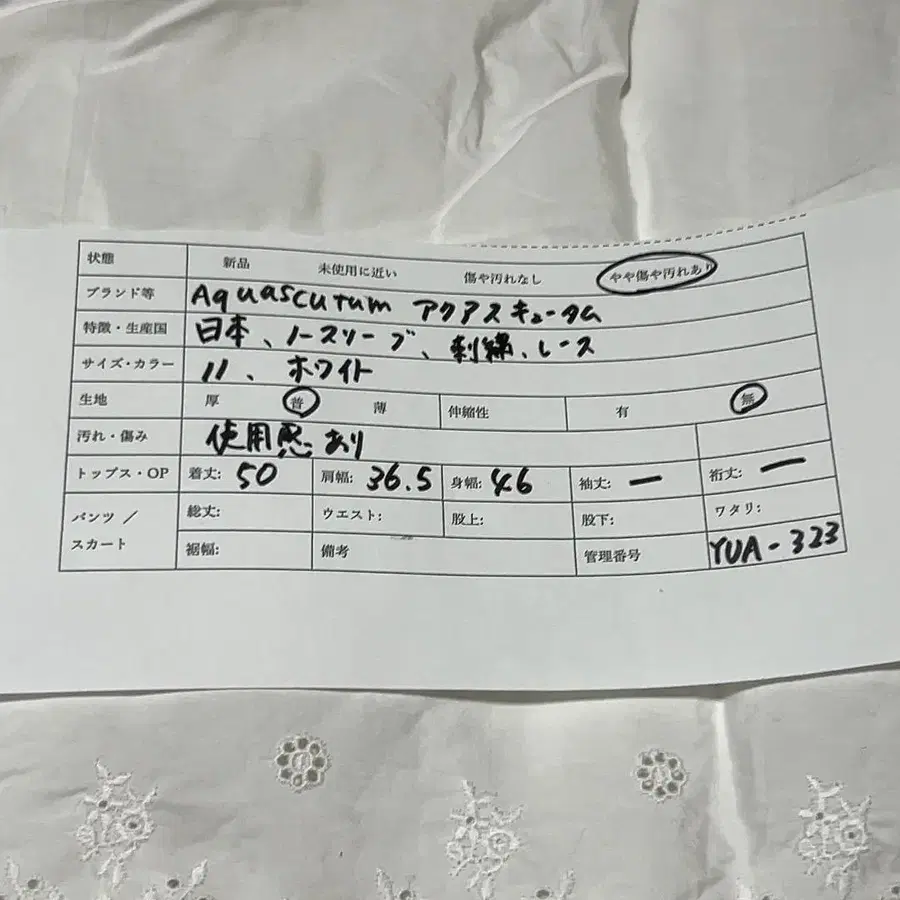 状態 新品 未使用に近い 傷や汚れなし やや傷や汚れあり
ブランド等 Aquascutum アクアスキュータム
特徴・生産国 日本、ノースリーブ、刺繍、レース
サイズ・カラー 11、ホワイト
生地 厚 普 薄 伸縮性 有 無
汚れ・傷み 使用感あり
トップス・OP 着丈: 50 肩幅: 36.5 身幅: 46 袖丈: ー 裄丈: ー
パンツ／ 総丈: ウエスト: 股上: 股下: ワタリ:
スカート 裾幅: 備考 管理番号 YUA-323